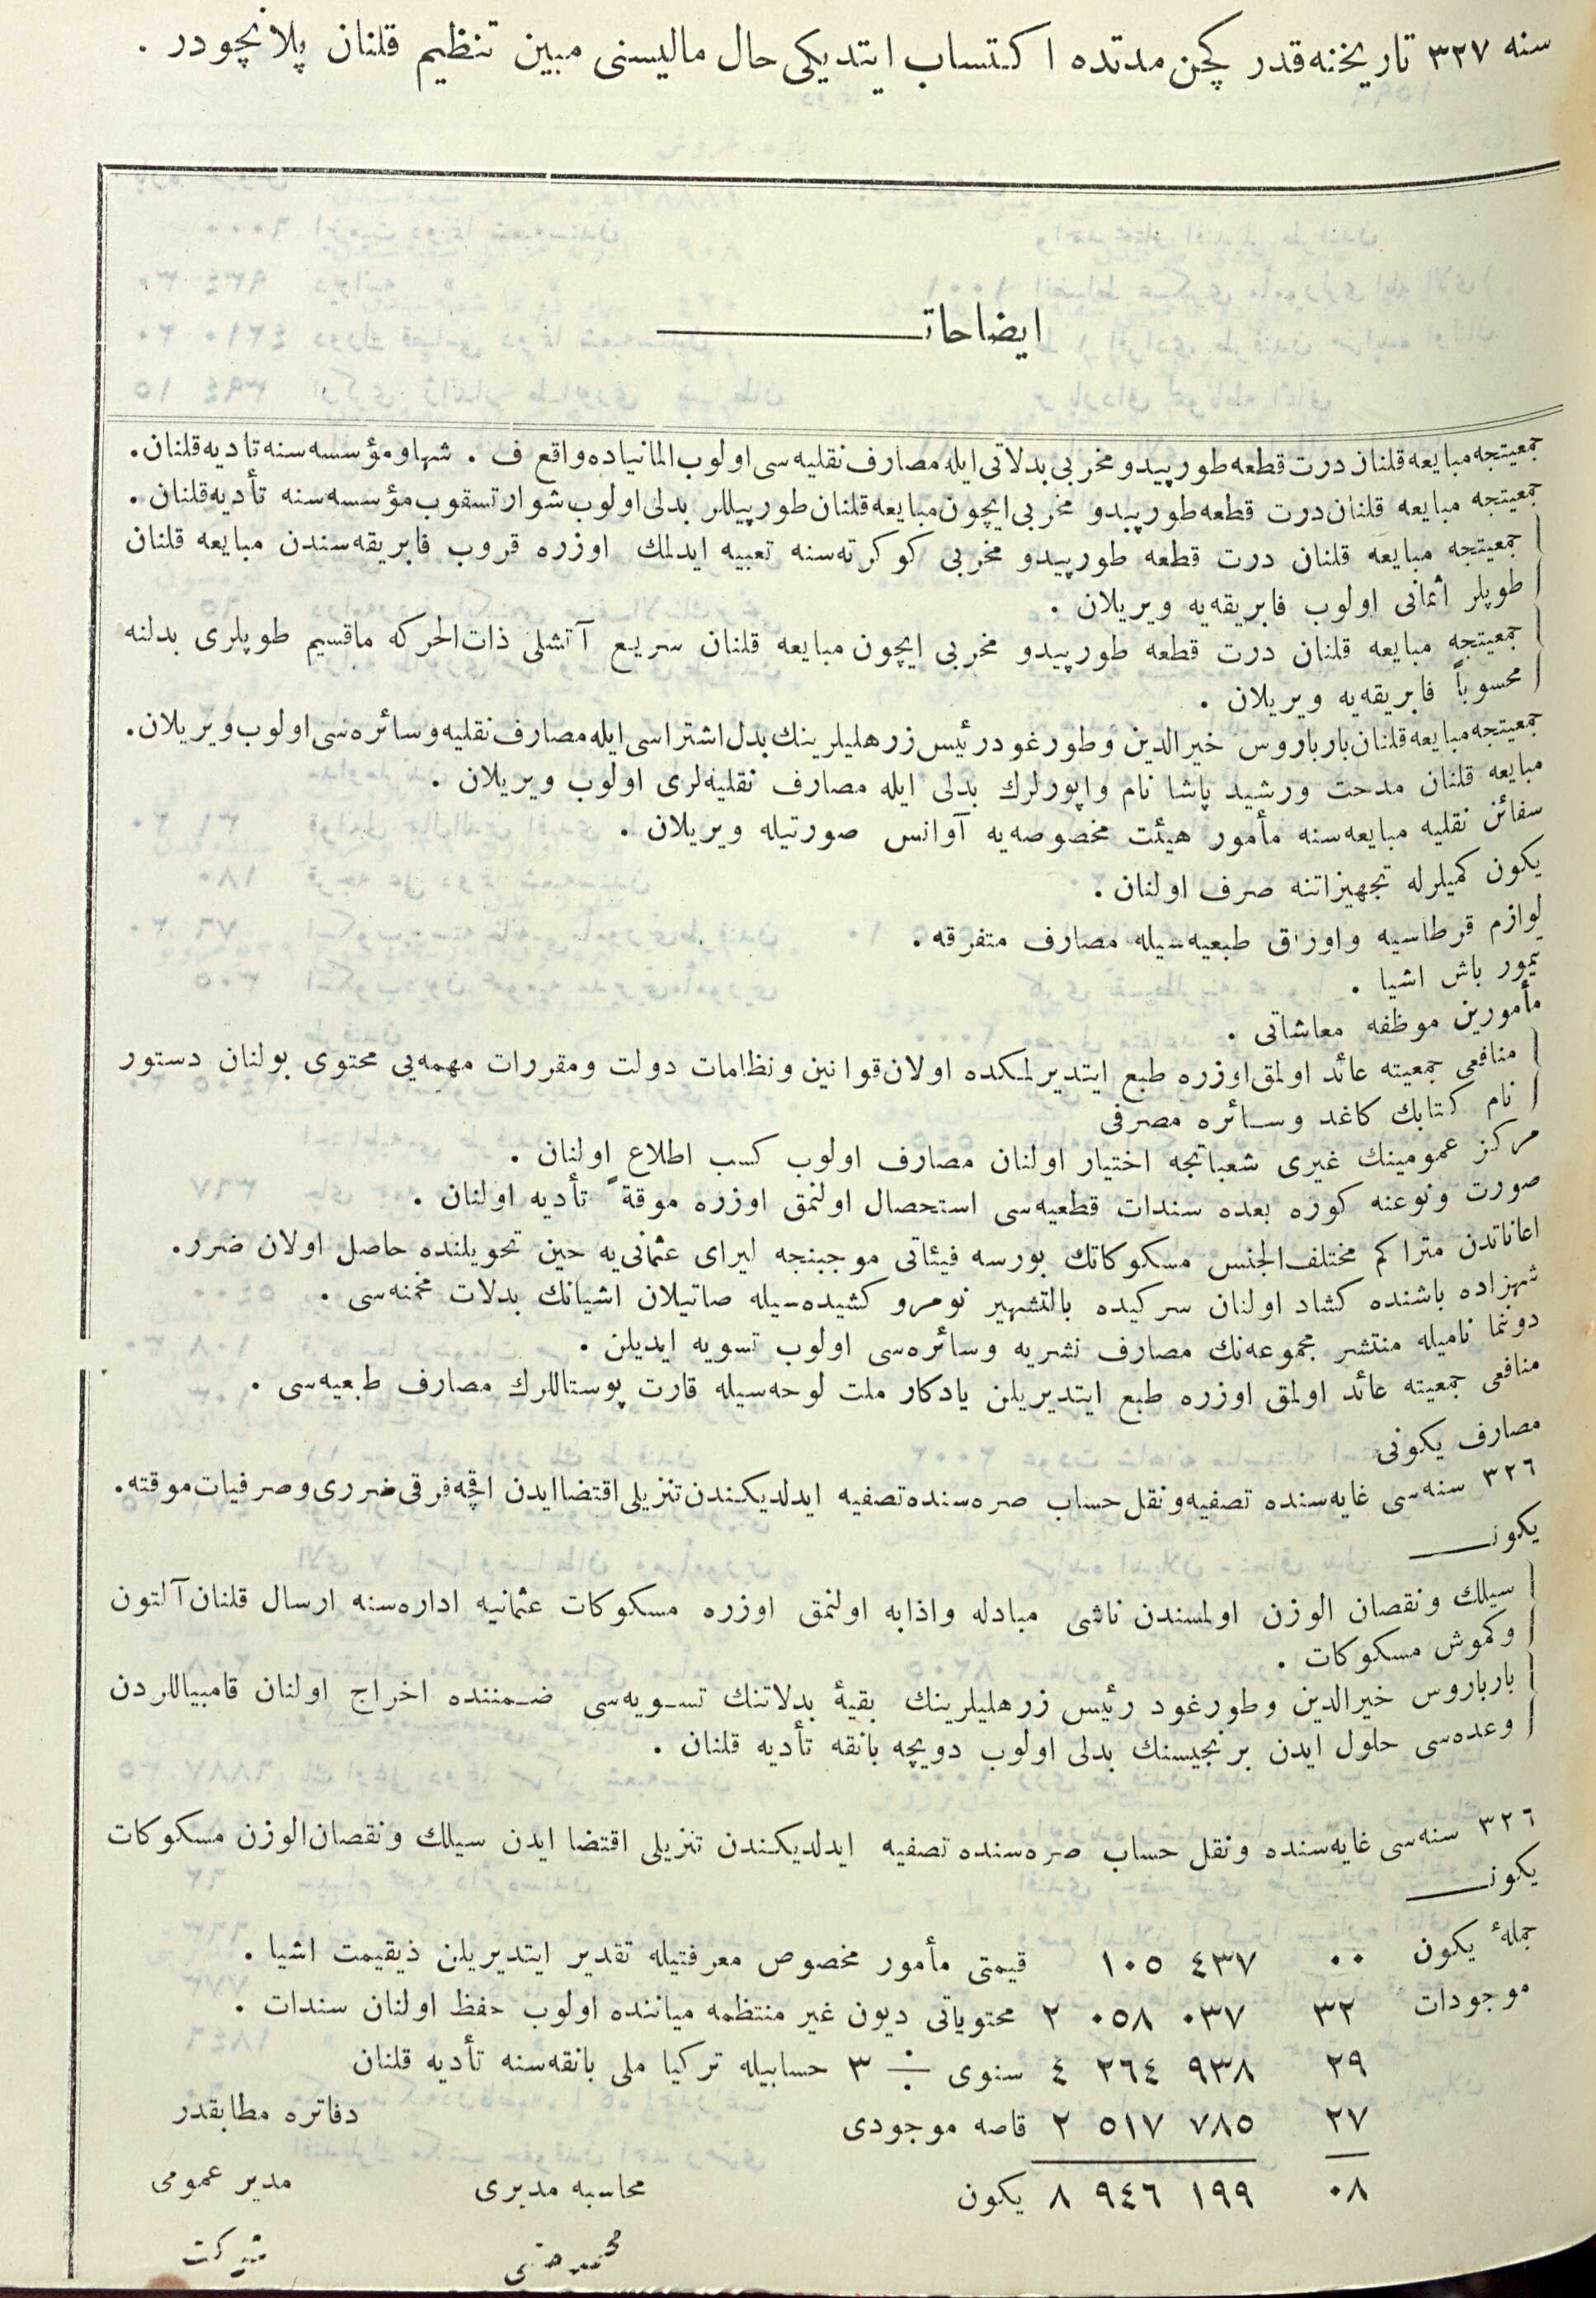 سنه ٣٢٧ تاریخنه‌قدر کچن مدتده اکتساب ایتدیکی حال مالیسنی مبین تنظیم قلنان پلانچودر .
ایضاحات
جمعیتجه مبایعه قلنان درت قطعه طورپیدو مخربی بدلاتی ایله مصارف نقلیه‌سی اولوب المانیاده واقع ف . شهاو مؤسسه‌سنه تادیه قلنان .
جمعیتجه مبایعه قلنان درت قطعه طورپیدو مخربی ایچون مبایعه قلنان طورپیللر بدلی اولوب شوارتسقوب مؤسسه‌سنه تأدیه قلنان .
جمعیتجه مبایعه قلنان درت قطعه طورپیدو مخربی کوکرته‌سنه تعبیه ایدلمك اوزره قروب فابریقه‌سندن مبایعه قلنان
طوپلر اثمانی اولوب فابریقه‌یه ویریلان .
جمعیتجه مبایعه قلنان درت قطعه طورپیدو مخربی ایچون مبایعه قلنان سریع آتشلی ذات‌الحرکه ماقسیم طوپلری بدلنه
محسوباً فابریقه‌یه ویریلان .
جمعیتجه مبایعه قلنان بارباروس خیرالدین وطورغود رئیس زرهلیلرینك بدل اشتراسی ایله مصارف نقلیه وسائره‌سی اولوب ویریلان .
مبایعه قلنان مدحت ورشید پاشا نام واپورلرك بدلی ایله مصارف نقلیه‌لری اولوب ویریلان .
سفائن نقلیه مبایعه‌سنه مأمور هیئت مخصوصه‌یه آوانس صورتیله ویریلان .
یکون کمیلرله تجهیزاتنه صرف اولنان .
لوازم قرطاسیه واوراق طبعیه‌سیله مصارف متفرقه .
تیمور باش اشیا .
مأمورین موظفه معاشاتی .
منافعی جمعیته عائد اولمق اوزره طبع ایتدیرلمکده اولان قوانین ونظامات دولت ومقررات مهمه‌یی محتوی بولنان دستور
نام کتابك کاغد وسائره مصرفی
مرکز عمومینك غیری شعباتجه اختیار اولنان مصارف اولوب کسب اطلاع اولنان .
صورت ونوعنه کوره بعده سندات قطعیه‌سی استحصال اولنمق اوزره موقةً تأدیه اولنان .
اعاناتدن متراکم مختلف‌الجنس مسکوکاتك بورسه فیئاتی موجبنجه لیرای عثمانی‌یه حین تحویلنده حاصل اولان ضرر .
شهزاده باشنده کشاد اولنان سرکیده بالتشهیر نومرو کشیده‌سیله صاتیلان اشیانك بدلات مخمنه‌سی .
دوننما نامیله منتشر مجموعه‌نك مصارف نشریه وسائره‌سی اولوب تسویه ایدیلن .
منافعی جمعیته عائد اولمق اوزره طبع ایتدیریلن یادکار ملت لوحه‌سیله قارت پوستاللرك مصارف طبعیه‌سی .
مصارف یکونی
٣٢٦ سنه‌سی غایه‌سنده تصفیه ونقل حساب صره‌سنده تصفیه ایدلدیکندن تنزیلی اقتضا ایدن اقچه فرقی ضرری وصرفیات موقته .
یکون
سیلك ونقصان الوزن اولمسندن ناشی مبادله واذابه اولنمق اوزره مسکوکات عثمانیه اداره‌سنه ارسال قلنان آلتون
وکموش مسکوکات .
بارباروس خیرالدین وطورغود رئیس زرهلیلرینك بقیهٔ بدلاتنك تسویه‌سی ضمننده اخراج اولنان قامبیاللردن
وعده‌سی حلول ایدن برنجیسنك بدلی اولوب دویچه بانقه تأدیه قلنان .
٣٢٦ سنه‌سی غایه‌سنده ونقل حساب صره‌سنده تصفیه ایدلدیکندن تنزیلی اقتضا ایدن سیلك ونقصان‌الوزن مسکوکات
یکون
جملهٔ یکون ٠٠ ٤٣٧ ١٠٥ قیمتی مأمور مخصوص معرفتیله تقدیر ایتدیریلن ذیقیمت اشیا .
موجودات ٣٢ ٠٣٧ ٠٥٨ ٢ محتویاتی دیون غیر منتظمه میاننده اولوب حفظ اولنان سندات .
٢٩ ٩٣٨ ٢٦٤ ٤ سنوی ٪ ٣ حسابیله ترکیا ملی بانقه‌سنه تأدیه قلنان
٢٧ ٧٨٥ ٥١٧ ٢ قاصه موجودی
دفاتره مطابقدر
٠٨ ١٩٩ ٩٤٦ ٨ یکون
محاسبه مدیری
مدیر عمومی